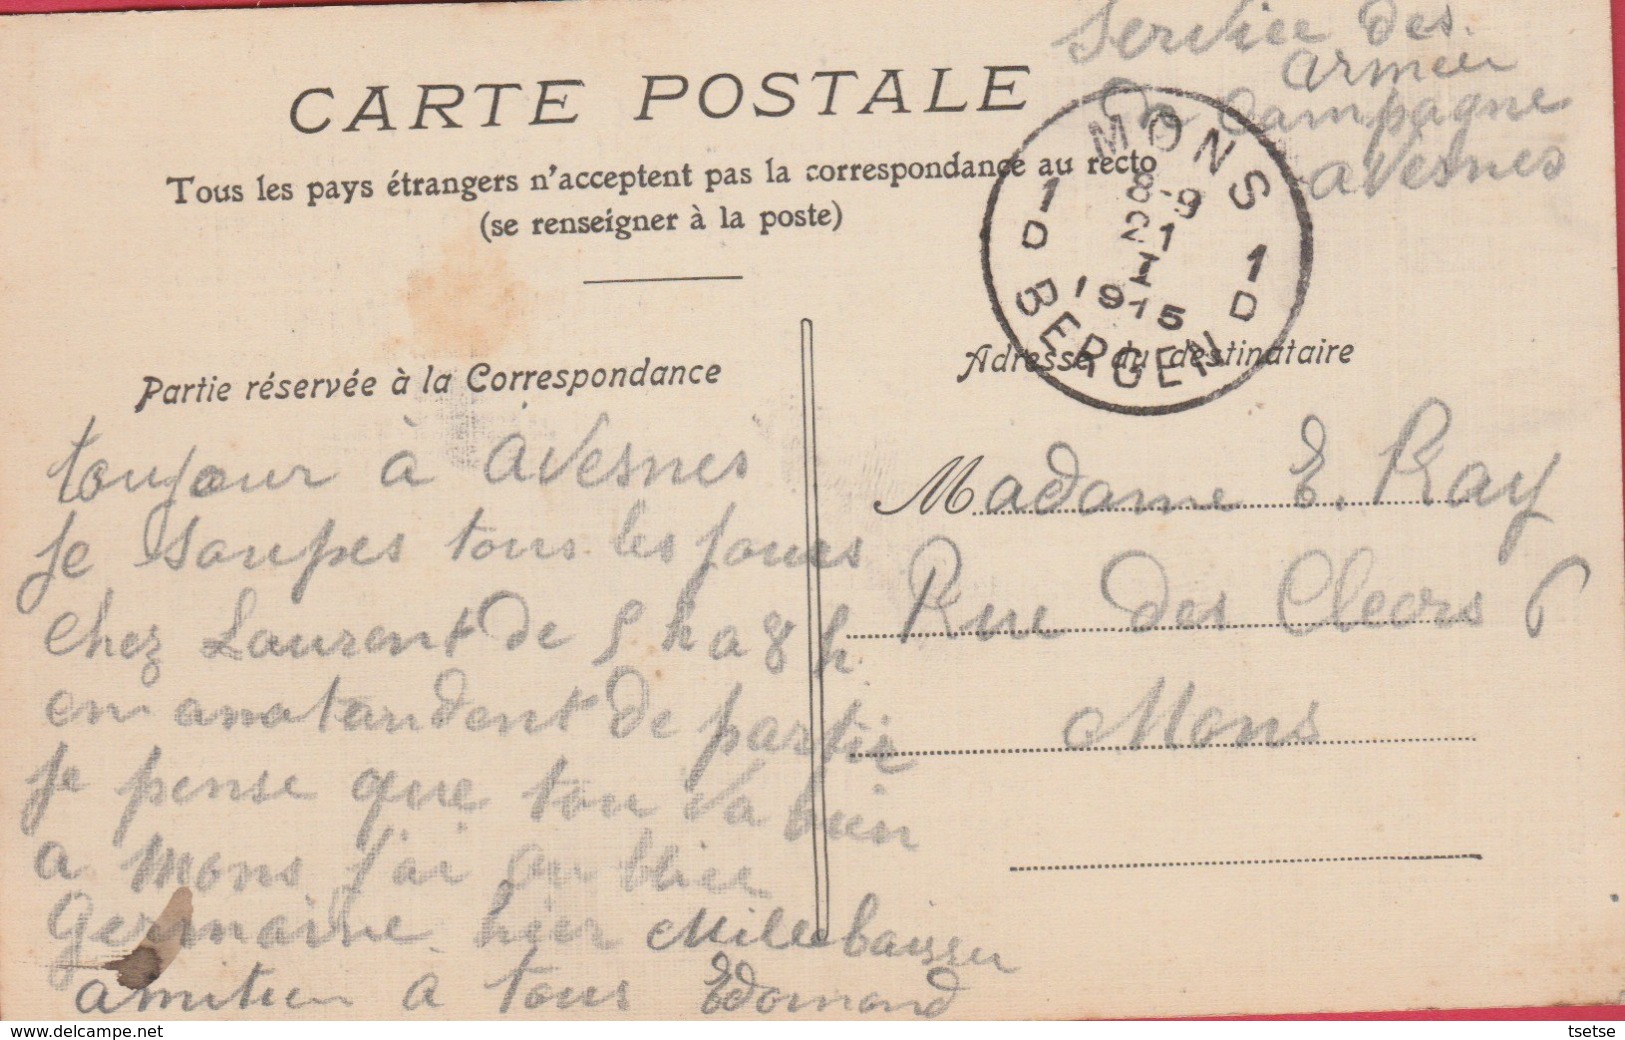 Service des
armeer
en Campagne
avesnes
CARTE POSTALE
Tous les pays étrangers n'acceptent pas la correspondance au recto
(se renseigner à la poste)
MONS
8-9
21
I
1915
1 D
1 D
BERGEN
Partie réservée à la Correspondance
toujour à avesnes
je soupes tous les joues
chez Laurent de 5 h a 8 h
en anatandent de partie
je pense que tou va bien
a Mons j'ai oublier
Germaine hier Mille baisser
amitier à tous Edomond
Adresse du destinataire
Madame E. Ray
Rue des Cleors 6
Mons
www.delcampe.net
tsetse